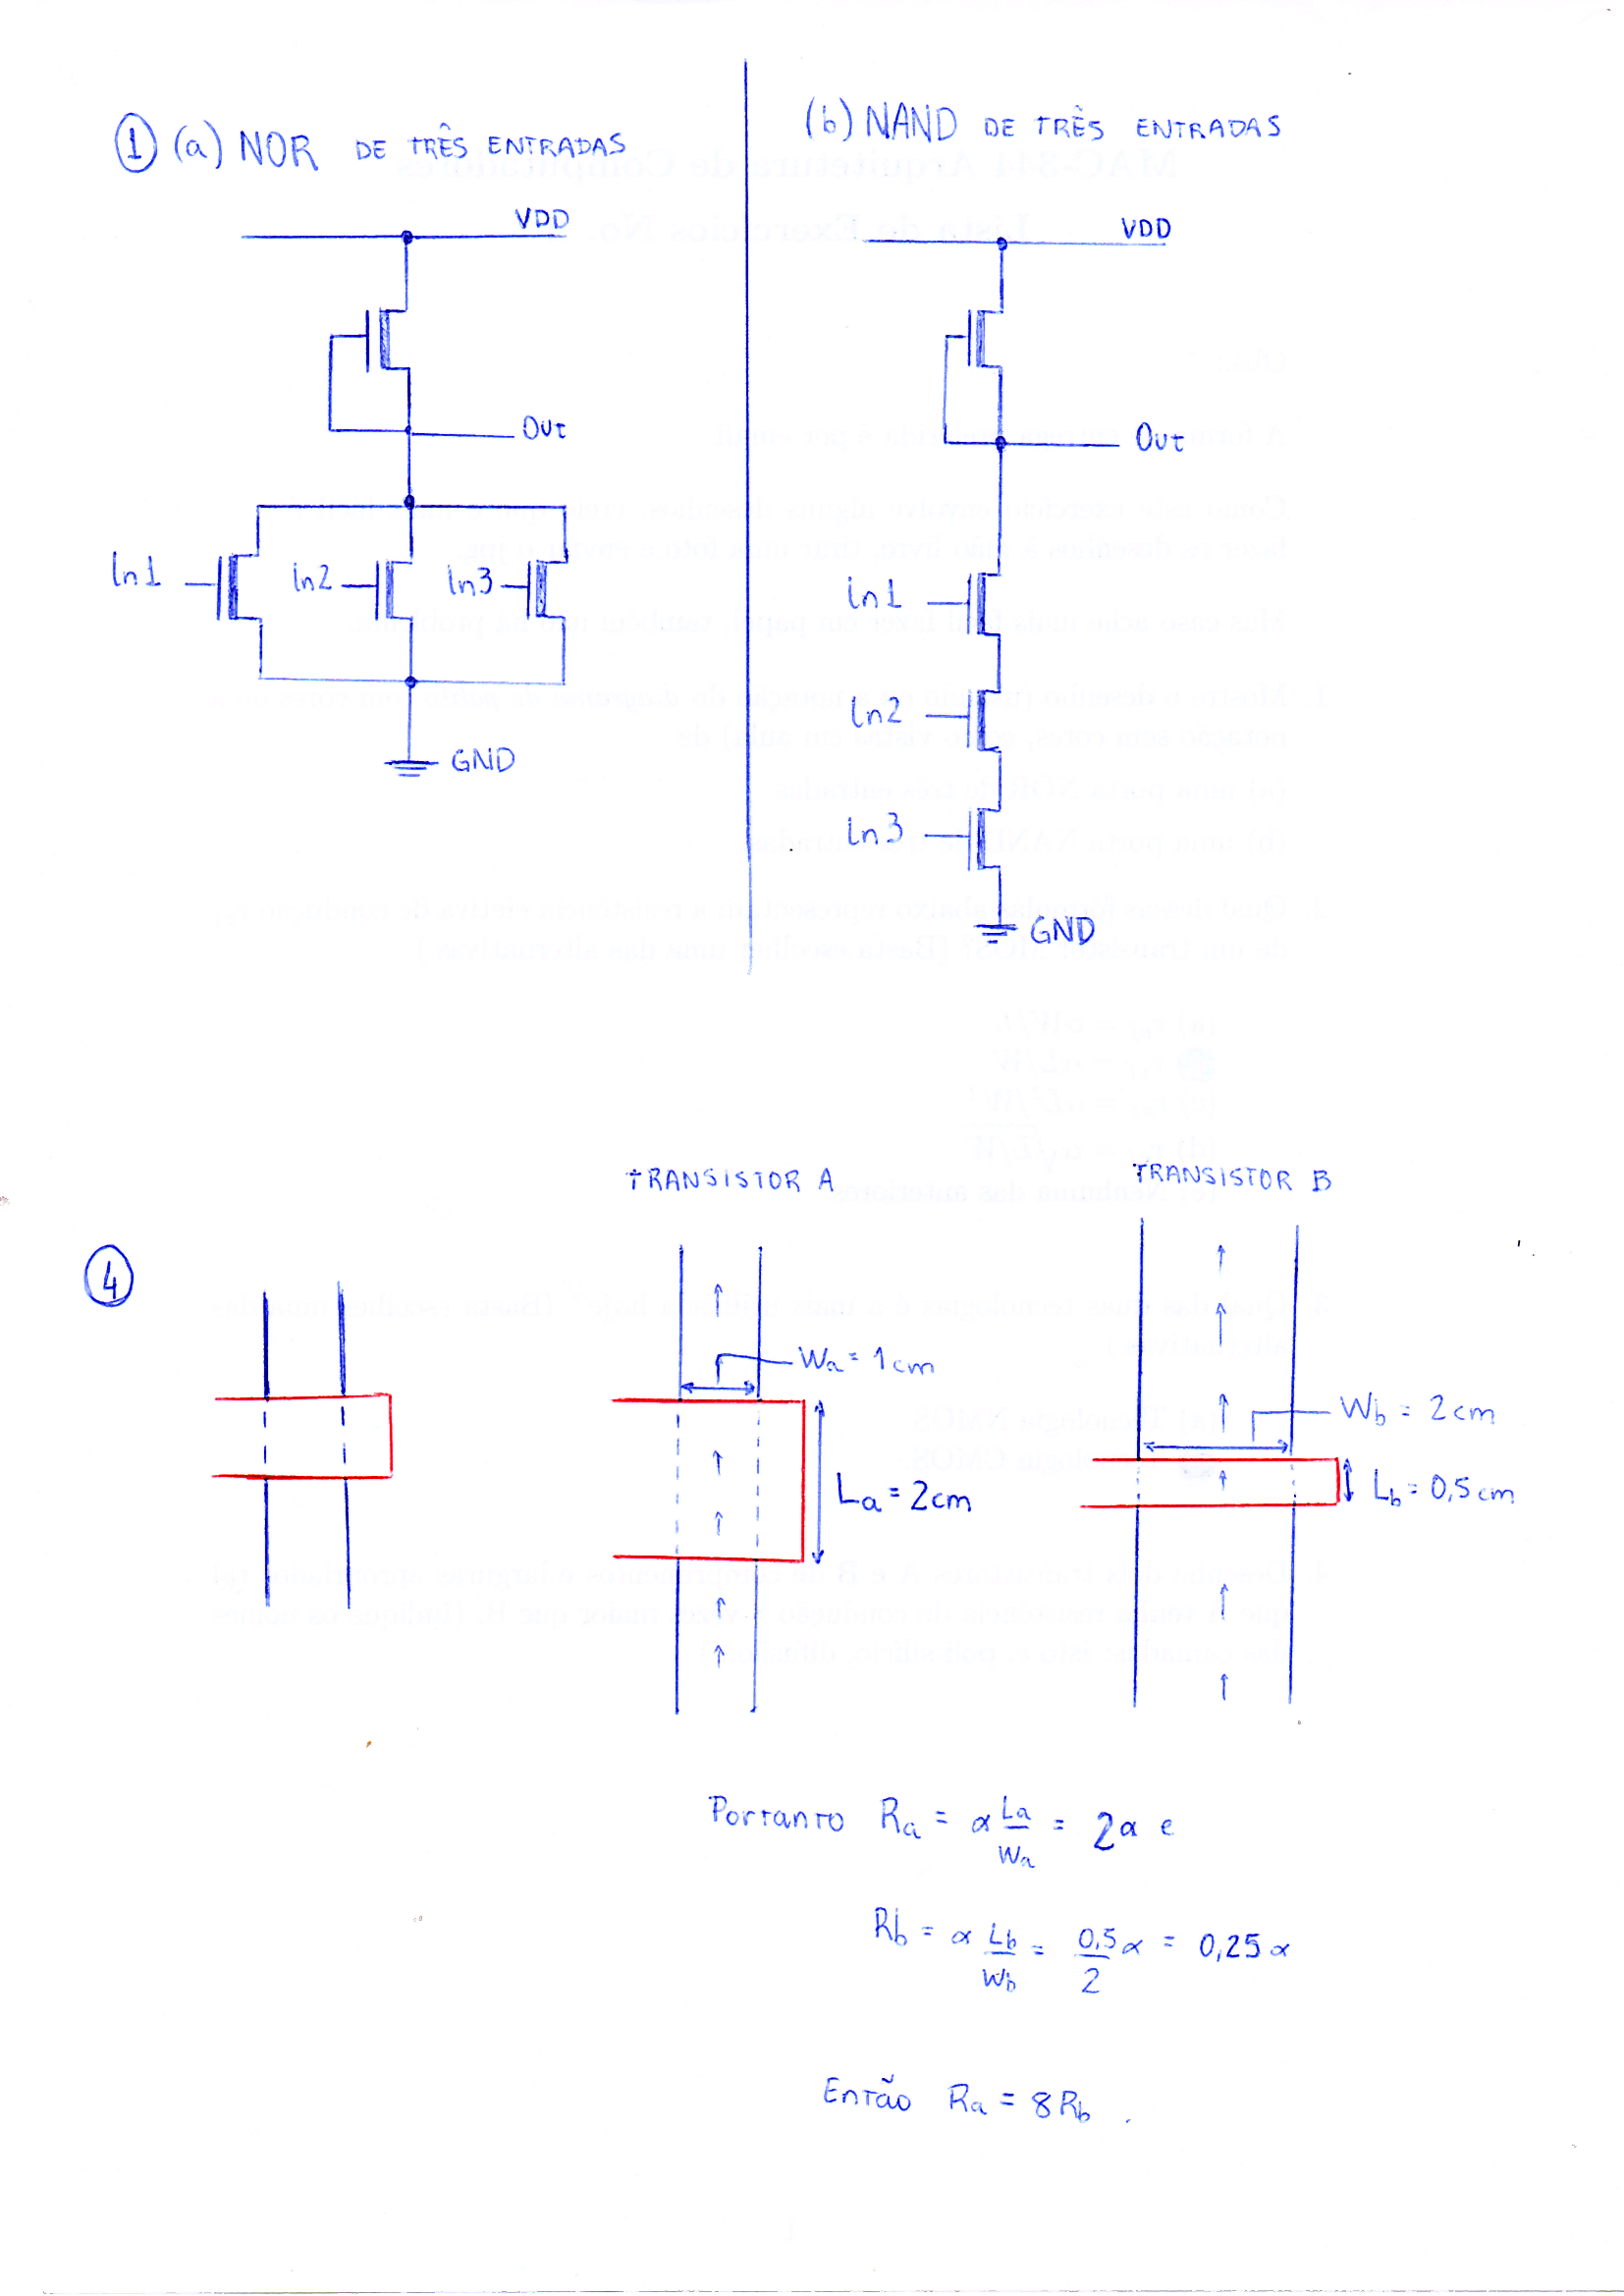 1 (a) NOR DE TRÊS ENTRADAS
VDD
Out
In1 In2 In3
GND
(b) NAND DE TRÊS ENTRADAS
VDD
Out
In1
In2
In3
GND
4
TRANSISTOR A
Wa = 1cm
La = 2cm
TRANSISTOR B
Wb = 2cm
Lb = 0,5cm
Portanto Ra = α La/Wa = 2α e
Rb = α Lb/Wb = 0,5/2 α = 0,25 α
Então Ra = 8Rb .